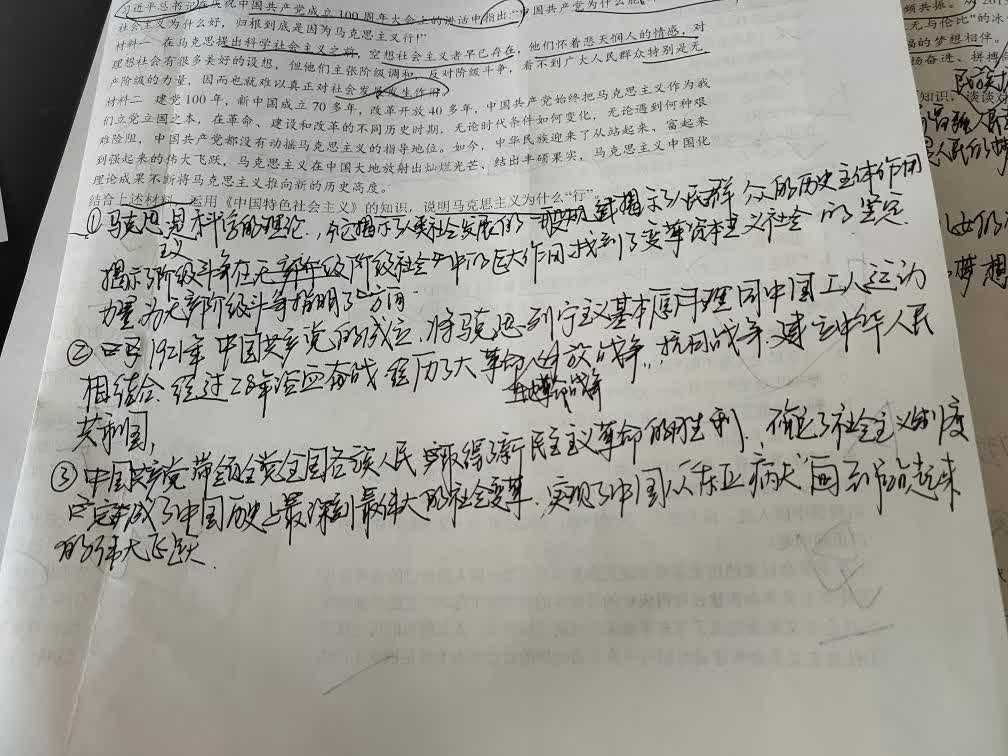 习近平总书记在庆祝中国共产党成立100周年大会上的讲话中指出:“中国共产党为什么能,
社会主义为什么好,归根到底是因为马克思主义行!”
材料一 在马克思提出科学社会主义之前,空想社会主义者早已存在,他们怀着悲天悯人的情感,对
理想社会有很多美好的设想,但他们主张阶级调和,反对阶级斗争,看不到广大人民群众特别是无
产阶级的力量,因而也就难以真正对社会发展发生作用。
材料二 建党100年,新中国成立70多年,改革开放40多年,中国共产党始终把马克思主义作为我
们立党立国之本,在革命、建设和改革的不同历史时期,无论时代条件如何变化,无论遇到何种艰
难险阻,中国共产党都没有动摇马克思主义的指导地位。如今,中华民族迎来了从站起来、富起来
到强起来的伟大飞跃,马克思主义在中国大地放射出灿烂光芒、结出丰硕果实,马克思主义中国化
理论成果不断将马克思主义推向新的历史高度。
结合上述材料,运用《中国特色社会主义》的知识,说明马克思主义为什么“行”。
①马克思主义是科学的理论,揭示了人类社会发展的一般规律揭示了人民群众的历史主体作用
揭示了阶级斗争在阶级社会中的巨大作用,找到了变革资本主义社会的坚定
力量,为无产阶级斗争指明了方向
②1921年中国共产党的成立,将马克思列宁主义基本原理同中国工人运动
相结合.经过28年浴血奋战 经历了大革命 土地革命战争 解放战争,抗日战争.建立中华人民
共和国,
③中国共产党带领全党全国各族人民取得了新民主主义革命的胜利,确定了社会主义制度
完成了中国历史上最深刻最伟大的社会变革.实现了中国从“东亚病夫”到站起来
的伟大飞跃.
频共振。
无与伦比”的冰
的梦想相伴。
扬奋进、拼搏
知识,谈谈
梦想